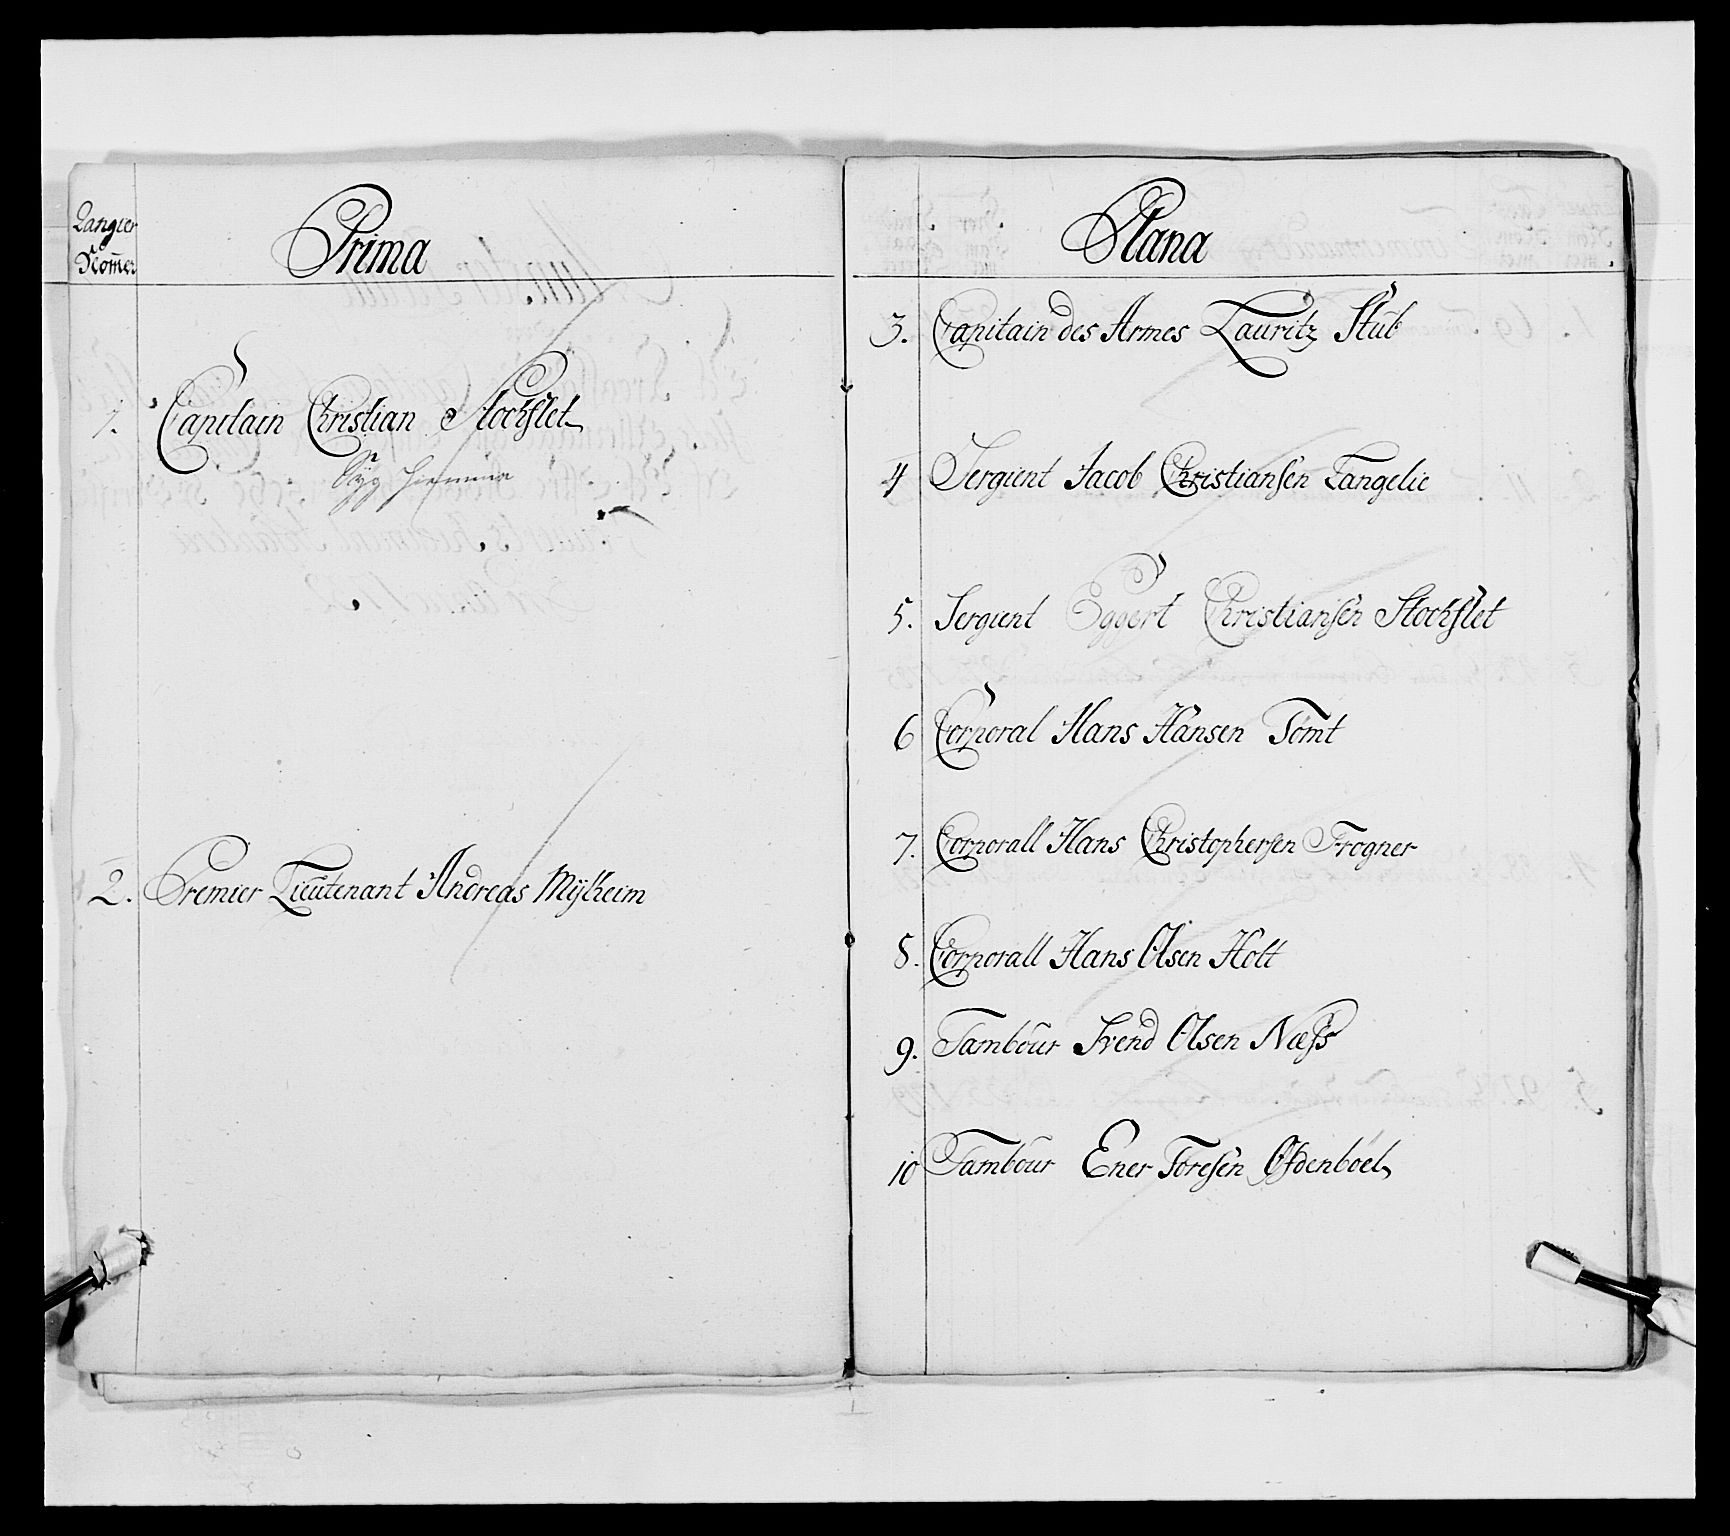 Rangier
Nom̃er
Prima
1. Capitain Christian Stochflet
Syg hiemme
2. Premier Lieutenant Andreas Mÿlheim
Plana
3. Capitain des Armes Lauritz Stub
4 Sergient Jacob Christiansen Tangelie
5. Sergient Eggert Christiansen Stochflet
6 Corporal Hans Hansen Tomt
7. Corporall Hans Christophersen Frogner
8. Corporall Hans Olsen Holt
9. Tambour Svend Olsen Næss
10 Tambour Ener Toresen